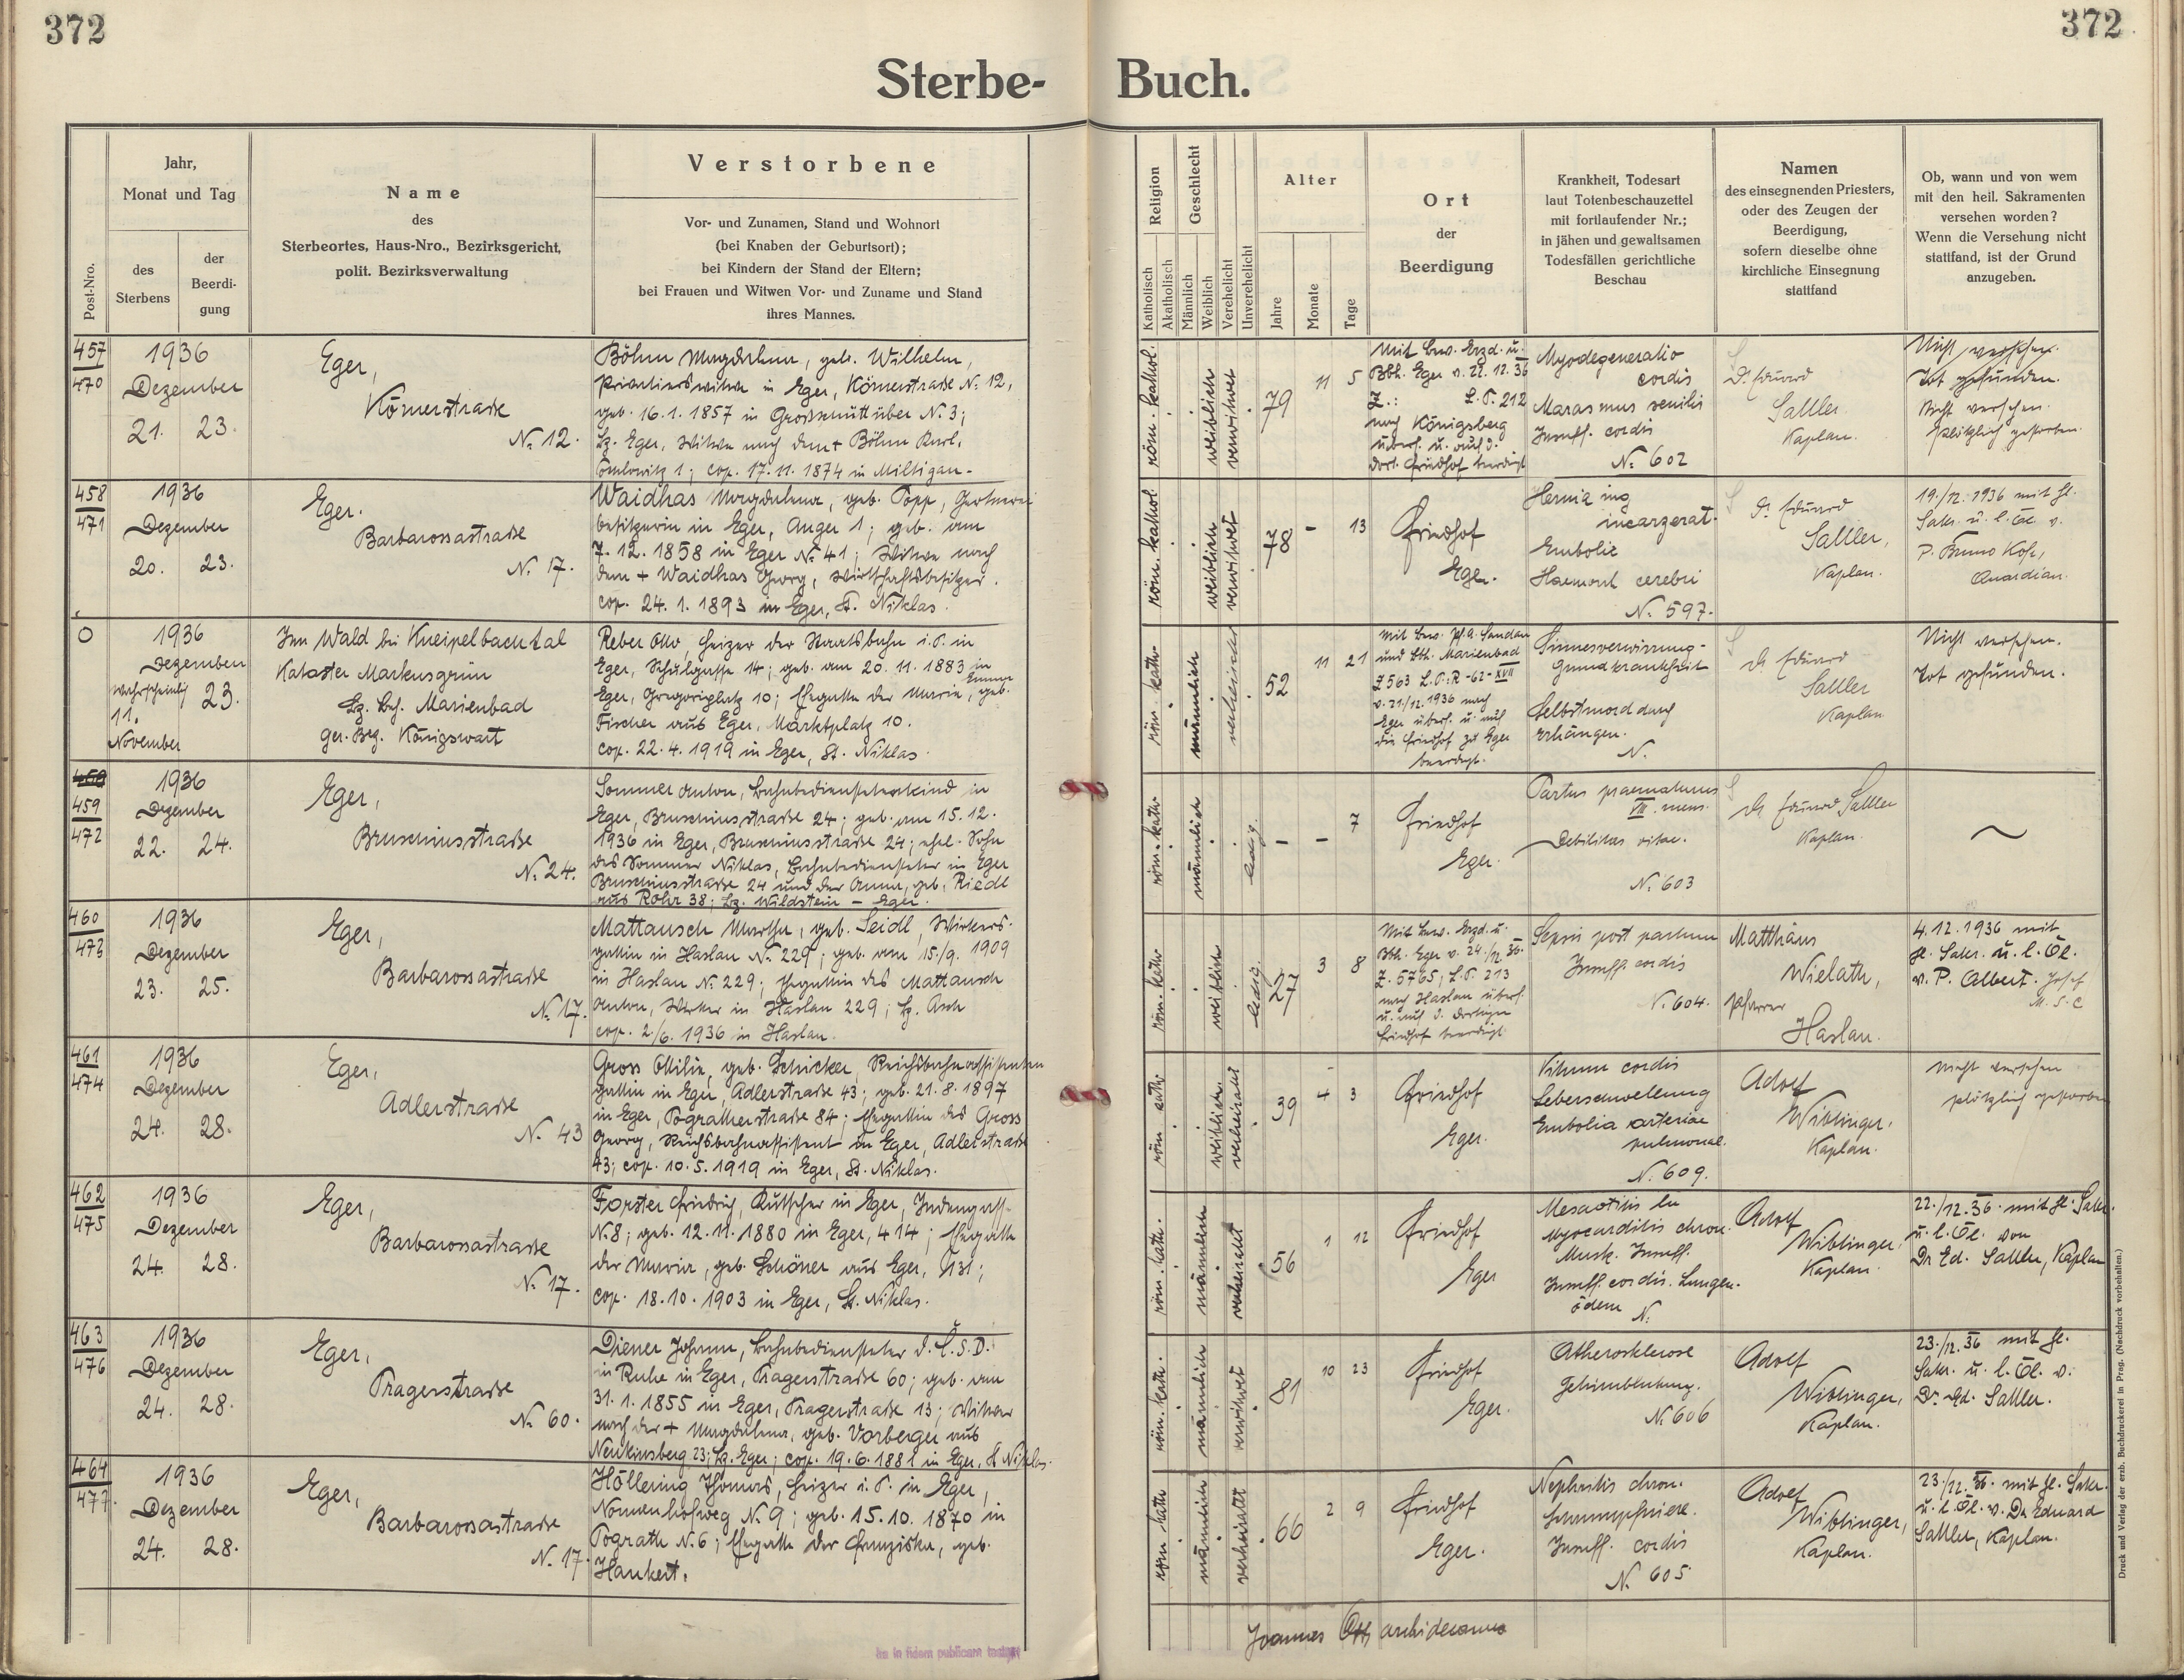 372
372
Sterbe-
Buch.
Post-Nro.
Jahr,
Monat und Tag
des
Sterbens
der
Beerdi-
gung
Name
des
Sterbeortes, Haus-Nro., Bezirksgericht,
polit. Bezirksverwaltung
Verstorbene
Vor- und Zunamen, Stand und Wohnort
(bei Knaben der Geburtsort);
bei Kindern der Stand der Eltern;
bei Frauen und Witwen Vor- und Zuname und Stand
ihres Mannes.
Religion
Katholisch
Akatholisch
Geschlecht
Männlich
Weiblich
Verehelicht
Unverehelicht
Alter
Jahre
Monate
Tage
Ort
der
Beerdigung
Krankheit, Todesart
laut Totenbeschauzettel
mit fortlaufender Nr.;
in jähen und gewaltsamen
Todesfällen gerichtliche
Beschau
Namen
des einsegnenden Priesters,
oder des Zeugen der
Beerdigung,
sofern dieselbe ohne
kirchliche Einsegnung
stattfand
Ob, wann und von wem
mit den heil. Sakramenten
versehen worden?
Wenn die Versehung nicht
stattfand, ist der Grund
anzugeben.
457
470
1936
Dezember
21. 23.
Eger,
Körnerstraße
N. 12.
Böhm Magdalena, geb. Wilhelm,
Privatierswitwe in Eger, Körnerstraße N. 12,
geb. 16.1.1857 in N. 3;
Bz. Eger, Witwe nach dem + Böhm Karl,
1; cop. 17.11.1874 in Miltigau.
röm. kathol.
weiblich
verwitwet
79
11
5
Mit Bew. Erzd. u.
Bbh. Eger v. 22.12.36
Z.: L.P. 212
nach Königsberg
überf. u. auf d.
dort. Friedhof beerdigt
Myodegeneratio
cordis
Marasmus senilis
Insuff. cordis
N. 602
Dr. Eduard
Sattler
Kaplan.
Nicht versehen.
Tot gefunden.
Nicht versehen.
plötzlich gestorben.
458
471
1936
Dezember
20. 23.
Eger.
Barbarossastraße
N. 17.
Waidhas Magdalena, geb. Popp,
besitzerin in Eger, Anger 1; geb. am
7.12.1858 in Eger N. 41; Witwe nach
dem + Waidhas Georg, Wirtschaftsbesitzer.
cop. 24.1.1893 in Eger, St. Niklas.
röm. kathol.
weiblich
verwitwet
78
-
13
Friedhof
Eger.
Hernia ing
incarzerat.
Embolie
Haemorh cerebri
N. 597.
Dr. Eduard
Sattler,
Kaplan.
19./12.1936 mit hl.
Sakr. u. l. Öl. v.
P. Bruno
Quardian.
0
1936
Dezember
wahrscheinlich 23.
11.
November
Im Wald bei Kneipelbachtal
Kataster Markusgrün
Bz. Beh. Marienbad
Ger. Bez. Königswart
Reber Otto, Heizer der Staatsbahn i.P. in
Eger, Schulgasse 14; geb. am 20.11.1883 in
Eger, Gregoriplatz 10; Ehegatte der Maria Emma, geb.
Fischer aus Eger, Marktplatz 10.
cop. 22.4.1919 in Eger, St. Niklas.
röm. kath.
männlich
verheiratet
52
11
21
Mit Bew. Pf. A. Sandau
und Bbh. Marienbad
Z 563 L.P.: R-62-XVII
v. 21/12.1936 nach
Eger überf. u. auf
die Friedhof zu Eger
beerdigt.
Sinnesverwirrung-
Grundkrankheit
Selbstmord durch
Erhängen.
N.
Dr. Eduard
Sattler
Kaplan
Nicht versehen.
Tot gefunden.
459
472
1936
Dezember
22. 24.
Eger,
Bruschiusstraße
N. 24.
Sommer Anton, Bahnbedienstetenkind in
Eger, Bruschiusstraße 24; geb. am 15.12.
1936 in Eger, Bruschiusstraße 24; ehel. Sohn
des Sommer Niklas, Bahnbediensteter in Eger
Bruschiusstraße 24 und der Anna, geb. Riedl
aus Rohr 38; Bz. Wildstein - Eger.
röm. kath.
männlich
ledig.
-
-
7
Friedhof
Eger.
Partus praematurus
VII. mens.
Debilitas vitae.
N. 603
Dr. Eduard Sattler
Kaplan.
~
460
473
1936
Dezember
23. 25.
Eger,
Barbarossastraße
N. 17.
Mattausch Martha, geb. Seidl, Wirkers-
gattin in Haslau N. 229; geb. am 15./9. 1909
in Haslau N. 229; Ehegattin des Mattausch
Anton, Wirker in Haslau 229; Bz. Asch
cop. 2/6. 1936 in Haslau.
röm. kath.
weiblich
ledig.
27
3
8
Mit Bew. Erzd. u.
Bbh. Eger v. 24./12.36.
Z. 5765, L.P. 213
nach Haslau überf.
u. auf d. dortigen
Friedhof beerdigt
Sepsis post partum
Insuff. cordis
N. 604.
Matthäus
Wielath,
Pfarrer
Haslau.
4.12.1936 mit
hl. Sakr. u. l. Öl.
v. P. Albert. Josef
M.S.C
461
474
1936
Dezember
24. 28.
Eger,
Adlerstraße
N. 43
Gross Ottilie, geb. Schicker, Reichsbahnassistenten
gattin in Eger, Adlerstraße 43; geb. 21.8.1897
in Eger, Pogratherstraße 84; Ehegattin des Gross
Georg, Reichsbahnassistent in Eger, Adlerstraße
43; cop. 10.5.1919 in Eger, St. Niklas.
röm. kath.
weiblich.
verheiratet
39
4
3
Friedhof
Eger.
Vitium cordis
Leberschwellung
Embolia arteriae
pulmonal.
N. 609.
Adolf
Wiblinger,
Kaplan.
Nicht versehen
plötzlich gestorben
462
475
1936
Dezember
24. 28.
Eger,
Barbarossastraße
N. 17.
Forster Friedrich, Kutscher in Eger, Judengasse
N. 8; geb. 12.11.1880 in Eger, 414; Ehegatte
der Maria, geb. Schöner aus Eger, 1131;
cop. 18.10.1903 in Eger, St. Niklas.
röm. kath.
männlich
verheiratet
56
1
12
Friedhof
Eger
Mesaotitis lu
Myocarditis chron.
Musk. Insuff.
Insuff. cordis. Lungen-
ödem N.
Adolf
Wiblinger,
Kaplan.
22./12.36. mit hl. Sakr.
u. l. Öl. von
Dr Ed. Sattler, Kaplan
463
476
1936
Dezember
24. 28.
Eger,
Pragerstraße
N. 60.
Diener Johann, Bahnbediensteter d. Č.S.D.
in Ruhe in Eger, Pragerstraße 60; geb. am
31.1.1855 in Eger, Pragerstraße 13; Witwer
nach der + Magdalena, geb. Vorberger aus
Neukinsberg 23; Bz. Eger; cop. 19.6.1881 in Eger, St Niklas.
röm. kath.
männlich
verwitwet
81
10
23
Friedhof
Eger.
Atherosklerose
Gehirnblutung.
N. 606
Adolf
Wiblinger,
Kaplan.
23./12.36 mit hl.
Sakr. u. l. Öl. v.
Dr. Ed. Sattler.
464
477.
1936
Dezember
24. 28.
Eger,
Barbarossastraße
N. 17.
Höllering Thomas, Heizer i.P. in Eger,
Nonnenhofweg N. 9; geb. 15.10.1870 in
Pograth N. 6; Ehegatte der Franziska, geb.
Hankert.
röm kath
männlich
verheiratet
66
2
9
Friedhof
Eger.
Nephritis chron.
Schrumpfniere.
Insuff. cordis
N. 605
Adolf
Wiblinger,
Kaplan.
23./12.36. mit hl. Sakr.
u. l. Öl. v. Dr Eduard
Sattler, Kaplan.
Joannes archidecanus
in fidem publicam
Druck und Verlag der erzb. Buchdruckerei in Prag. (Nachdruck vorbehalten.)